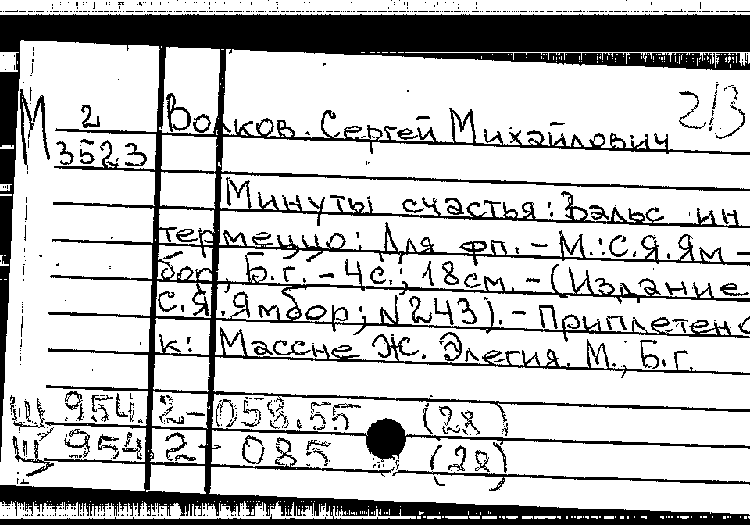 2/3
М 2 Волков. Сергей Михайлович
3523
Минуты счастья: Вальс ин
термеццо: Для фп. - М.: С.Я. Ям -
бор, Б.г. - 4с.; 18см. - (Издание
С.Я. Ямбор; N 243). - Приплетено
к: Массне Ж. Элегия. М., Б.г.
Щ 954.2-058.55 (28)
Щ 954.2-085 (28)